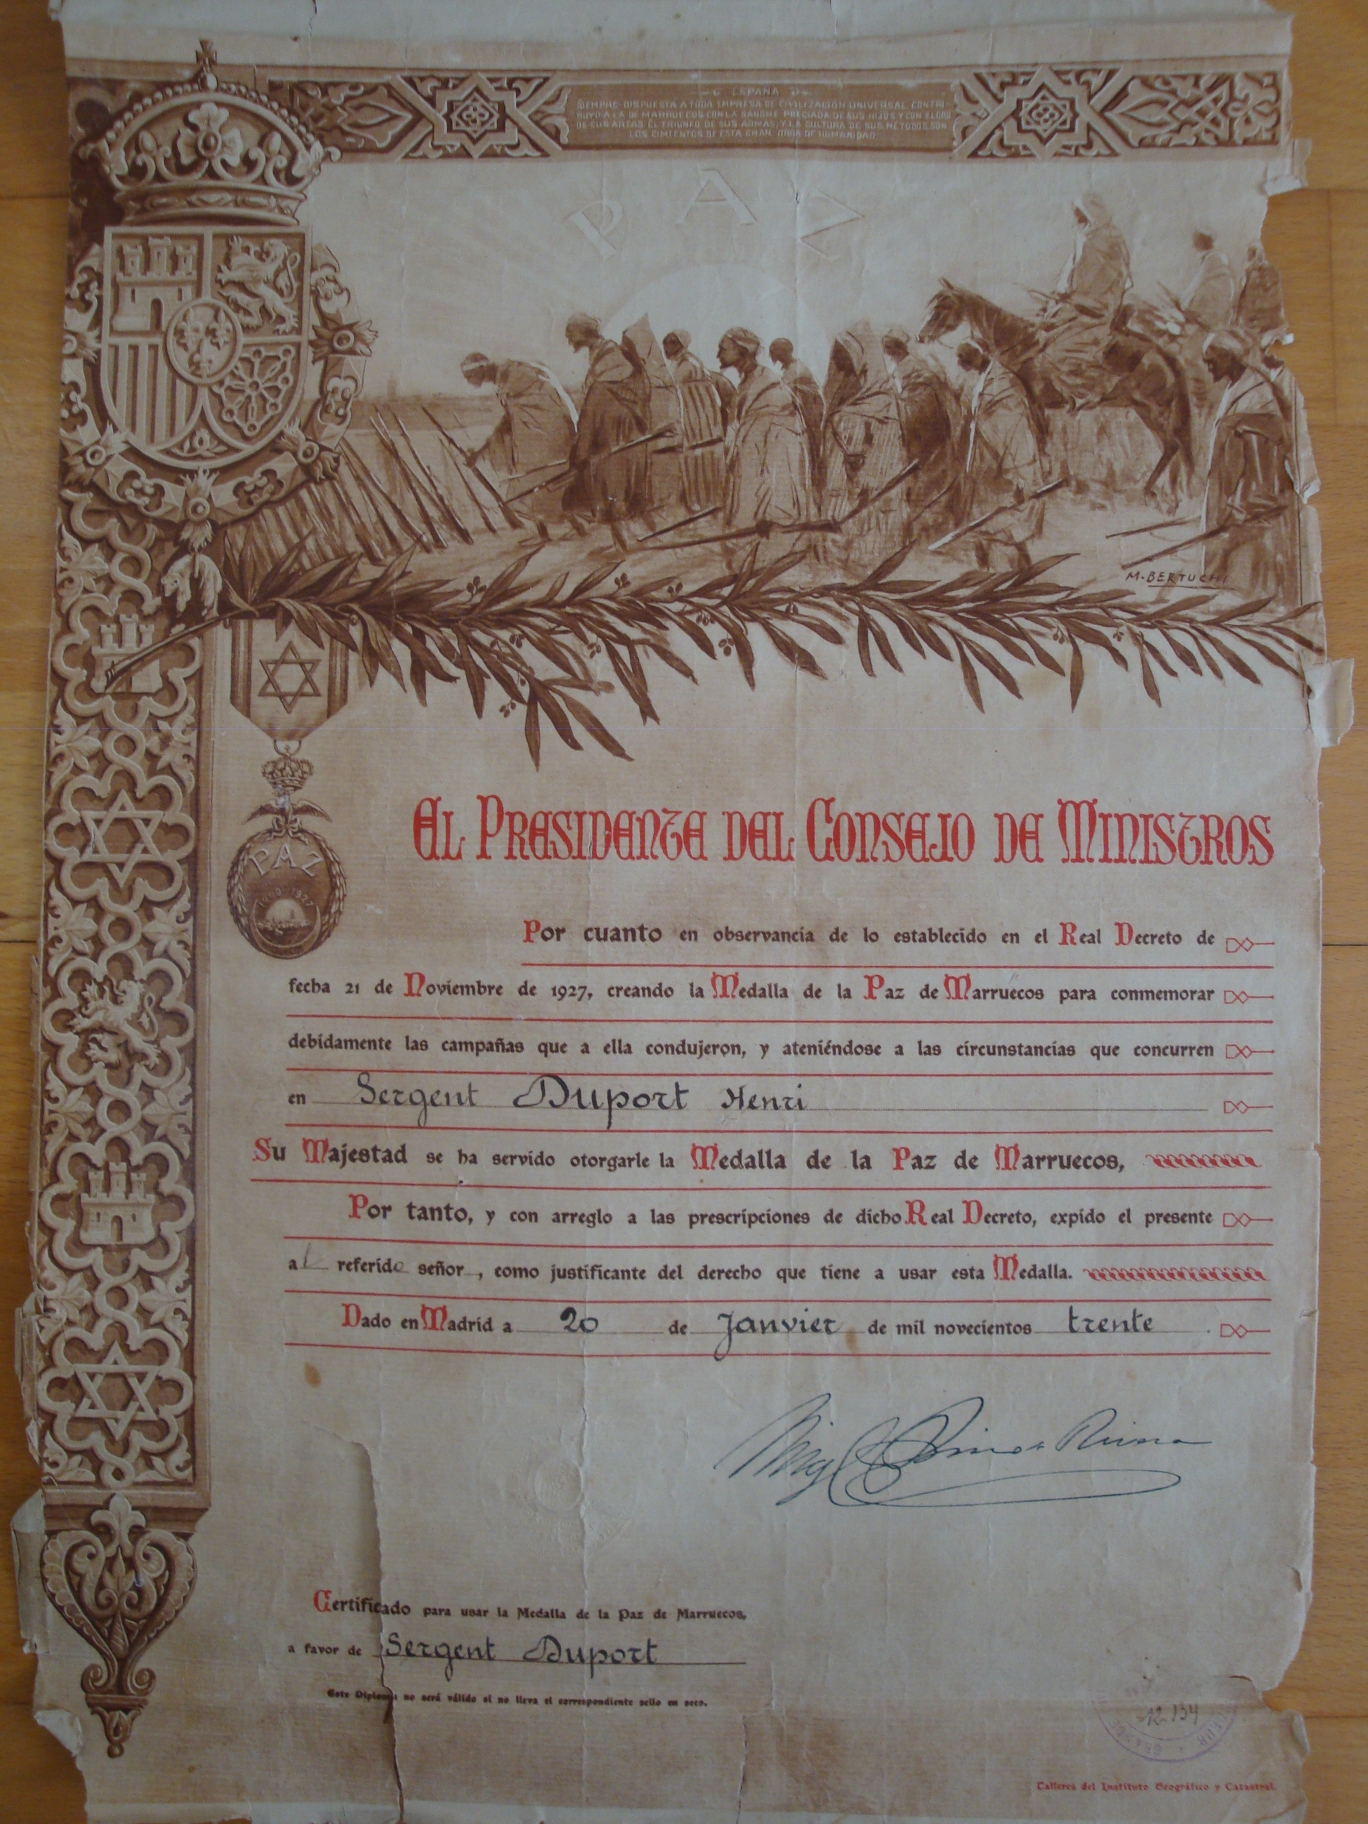 ESPAÑA
SIEMPRE DISPUESTA A TODA EMPRESA DE CIVILIZACIÓN UNIVERSAL, CONTRI-
BUYÓ A LA DE MARRUECOS CON LA SANGRE PRECIADA DE SUS HIJOS Y CON EL ORO
DE SUS ARCAS. EL TRIUNFO DE SUS ARMAS Y LA CULTURA DE SUS METODOS, SON
LOS CIMIENTOS DE ESTA GRAN OBRA DE HUMANIDAD.
PAZ
M-BERTUCHI
PAZ
1909 1927
El Presidente del Consejo de Ministros
Por cuanto en observancia de lo establecido en el Real Decreto de
fecha 21 de Noviembre de 1927, creando la Medalla de la Paz de Marruecos para conmemorar
debidamente las campañas que a ella condujeron, y ateniéndose a las circunstancias que concurren
en Sergent Duport Henri
Su Majestad se ha servido otorgarle la Medalla de la Paz de Marruecos,
Por tanto, y con arreglo a las prescripciones de dicho Real Decreto, expido el presente
al referido señor, como justificante del derecho que tiene a usar esta Medalla.
Dado en Madrid a 20 de Janvier de mil novecientos trente
Miguel Primo de Rivera
Certificado para usar la Medalla de la Paz de Marruecos,
a favor de Sergent Duport
Este Diploma no será válido si no lleva el correspondiente sello en seco.
12.134
Talleres del Instituto Geográfico y Catastral.